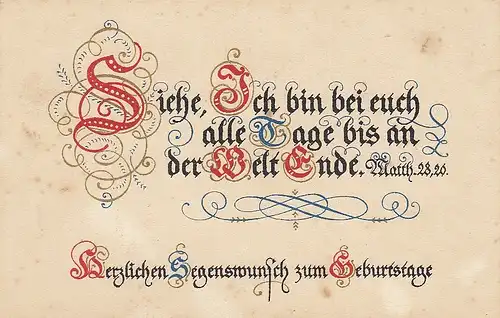 Siehe, Ich bin bei euch
alle Tage bis an
der Welt Ende. Matth. 28, 20.
Herzlichen Segenswunsch zum Geburtstage